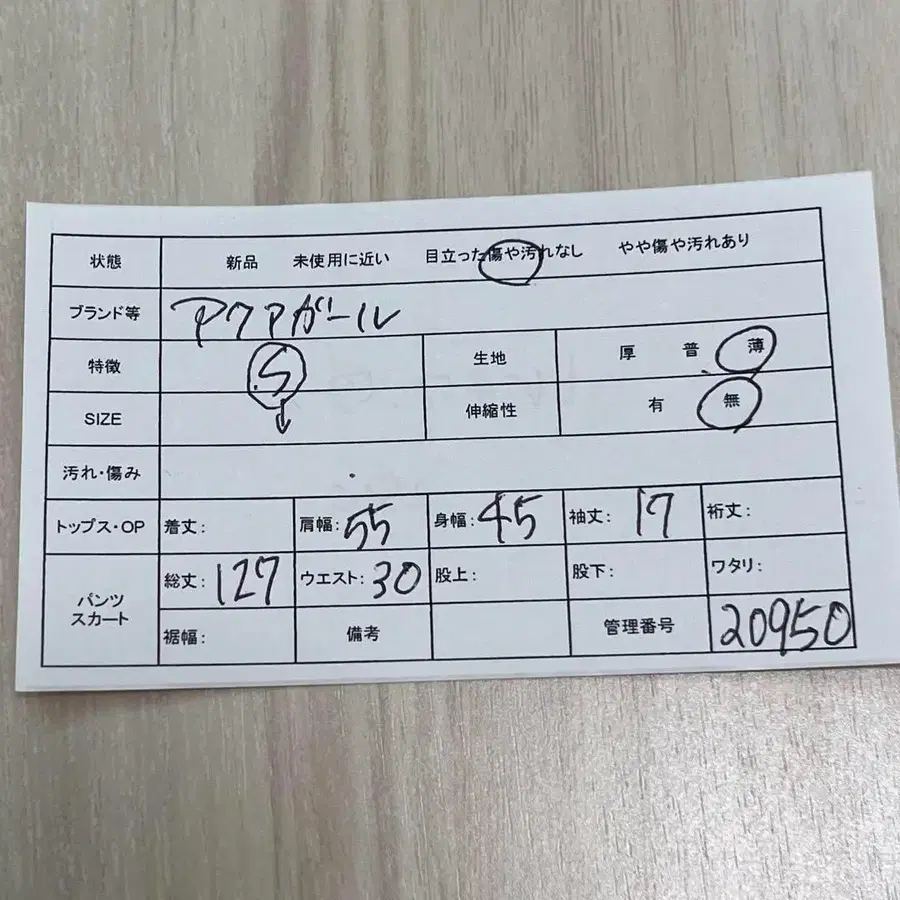 状態 新品 未使用に近い 目立った傷や汚れなし やや傷や汚れあり
ブランド等 アクアガール
特徴 S 生地 厚 普 薄
SIZE 伸縮性 有 無
汚れ・傷み
トップス・OP 着丈: 肩幅: 55 身幅: 45 袖丈: 17 裄丈:
パンツ スカート 総丈: 127 ウエスト: 30 股上: 股下: ワタリ:
裾幅: 備考 管理番号 20950